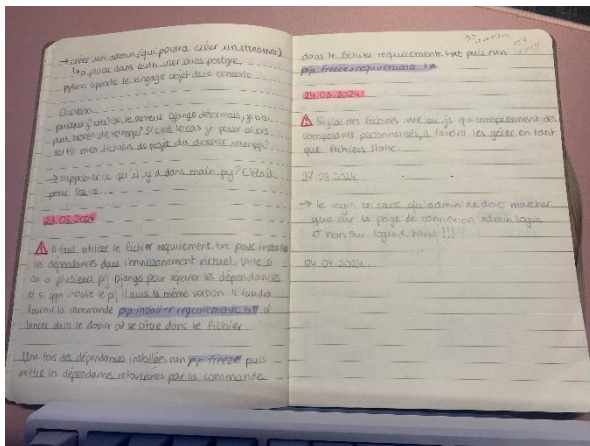 → créer un admin (qui pourra créer un streamer)
↳ a placer dans auth_user dans postgre
python apporte le langage objet dans ce contexte
Question:
puisque j'utilise le serveur Django désormais, je n'ai
plus besoin de xampp? Si c'est le cas je peux alors
sortir mes fichiers de projet du dossier xampp?
→ supprimer ce qu'il y a dans main.py? C'était
pour
23.03.2024
⚠ Il faut utiliser le fichier requirement.txt pour installer
les dépendances dans l'environnement virtuel. Utile si
on a plusieurs pjt Django pour séparer les dépendances
et si qqn installe le pjt il aura la même version. Il faudra
fournir la commande pip install -r requirements.txt à
lancer dans le dossier où se situe dans le fichier
Une fois des dépendances installées run pip freeze puis
mettre les dépendances retournées par la commande
dans le fichier requirements.txt puis run
pip freeze > requirements.txt
24.03.2024
⚠ Si j'ai des fichiers vue ou js qui comprennent des
composants personnalisés, il faudra les gérer en tant
que fichiers static
27.03.2024
→ le login en tant qu'admin ne doit marcher
que sur la page de connexion admin login
et non sur login.html!!!
04.04.2024